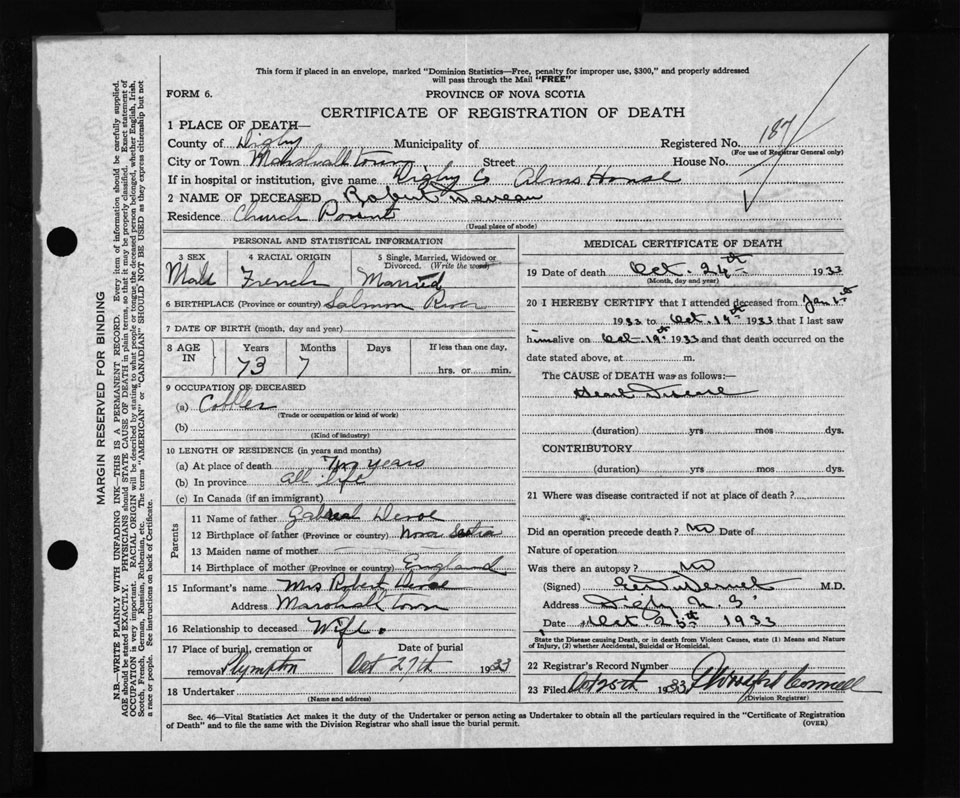 This form if placed in an envelope, marked "Dominion Statistics—Free, penalty for improper use, $300," and properly addressed
will pass through the Mail "FREE"
FORM 6.
PROVINCE OF NOVA SCOTIA
CERTIFICATE OF REGISTRATION OF DEATH
1 PLACE OF DEATH—
County of Digby Municipality of Registered No. 187
(For use of Registrar General only)
City or Town Marshalltown Street House No.
If in hospital or institution, give name Digby Co Alms House
2 NAME OF DECEASED Robert
Residence Church Point
(Usual place of abode)
PERSONAL AND STATISTICAL INFORMATION
3 SEX 4 RACIAL ORIGIN 5 Single, Married, Widowed or
Divorced. (Write the word)
Male French Married
6 BIRTHPLACE (Province or country) Salmon River
7 DATE OF BIRTH (month, day and year)
8 AGE IN Years Months Days If less than one day,
73 7 hrs. or min.
9 OCCUPATION OF DECEASED
(a) Cobbler
(Trade or occupation or kind of work)
(b)
(Kind of industry)
10 LENGTH OF RESIDENCE (in years and months)
(a) At place of death Two years
(b) In province all life
(c) In Canada (if an immigrant)
Parents
11 Name of father Gabriel
12 Birthplace of father (Province or country) Nova Scotia
13 Maiden name of mother
14 Birthplace of mother (Province or country) England
15 Informant's name Mrs Robert
Address Marshalltown
16 Relationship to deceased Wife.
17 Place of burial, cremation or Date of burial
removal Plympton Oct 27th 1933
18 Undertaker
(Name and address)
MEDICAL CERTIFICATE OF DEATH
19 Date of death Oct. 24th 1933
(Month, day and year)
20 I HEREBY CERTIFY that I attended deceased from Jan 1st
1933 to Oct. 19th 1933 that I last saw
him alive on Oct 19th 1933 and that death occurred on the
date stated above, at m.
The CAUSE of DEATH was as follows:—
Heart Disease
(duration) yrs mos dys.
CONTRIBUTORY
(duration) yrs mos dys.
21 Where was disease contracted if not at place of death?
Did an operation precede death? No Date of
Nature of operation
Was there an autopsy? No
(Signed) M.D.
Address Digby N. S.
Date Oct 1933
State the Disease causing Death, or in death from Violent Causes, state (1) Means and Nature
of Injury, (2) whether Accidental, Suicidal or Homicidal.
22 Registrar's Record Number
23 Filed Oct 25th 1933
(Division Registrar)
Sec. 46—Vital Statistics Act makes it the duty of the Undertaker or person acting as Undertaker to obtain all the particulars required in the "Certificate of Registration
of Death" and to file the same with the Division Registrar who shall issue the burial permit.
(OVER)
MARGIN RESERVED FOR BINDING
N.B.—WRITE PLAINLY WITH UNFADING INK—THIS IS A PERMANENT RECORD. Every item of information should be carefully supplied.
AGE should be stated EXACTLY. PHYSICIANS should STATE CAUSE OF DEATH in plain terms, so that it may be properly classified. Exact statement of
OCCUPATION is very important. RACIAL ORIGIN will be described by stating to what people or tongue the deceased person belonged, whether English, Irish,
Scotch, French, German, Russian, Ruthenian, etc. The terms "AMERICAN" or "CANADIAN" SHOULD NOT BE USED as they express citizenship but not
a race or people. See instructions on back of Certificate.